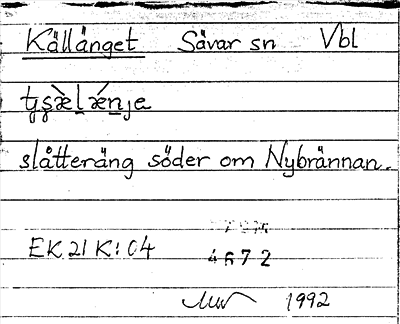 Källänget Sävar sn Vbl
slåtteräng söder om Nybrännan.
EK 21 K: 04
4672
1992